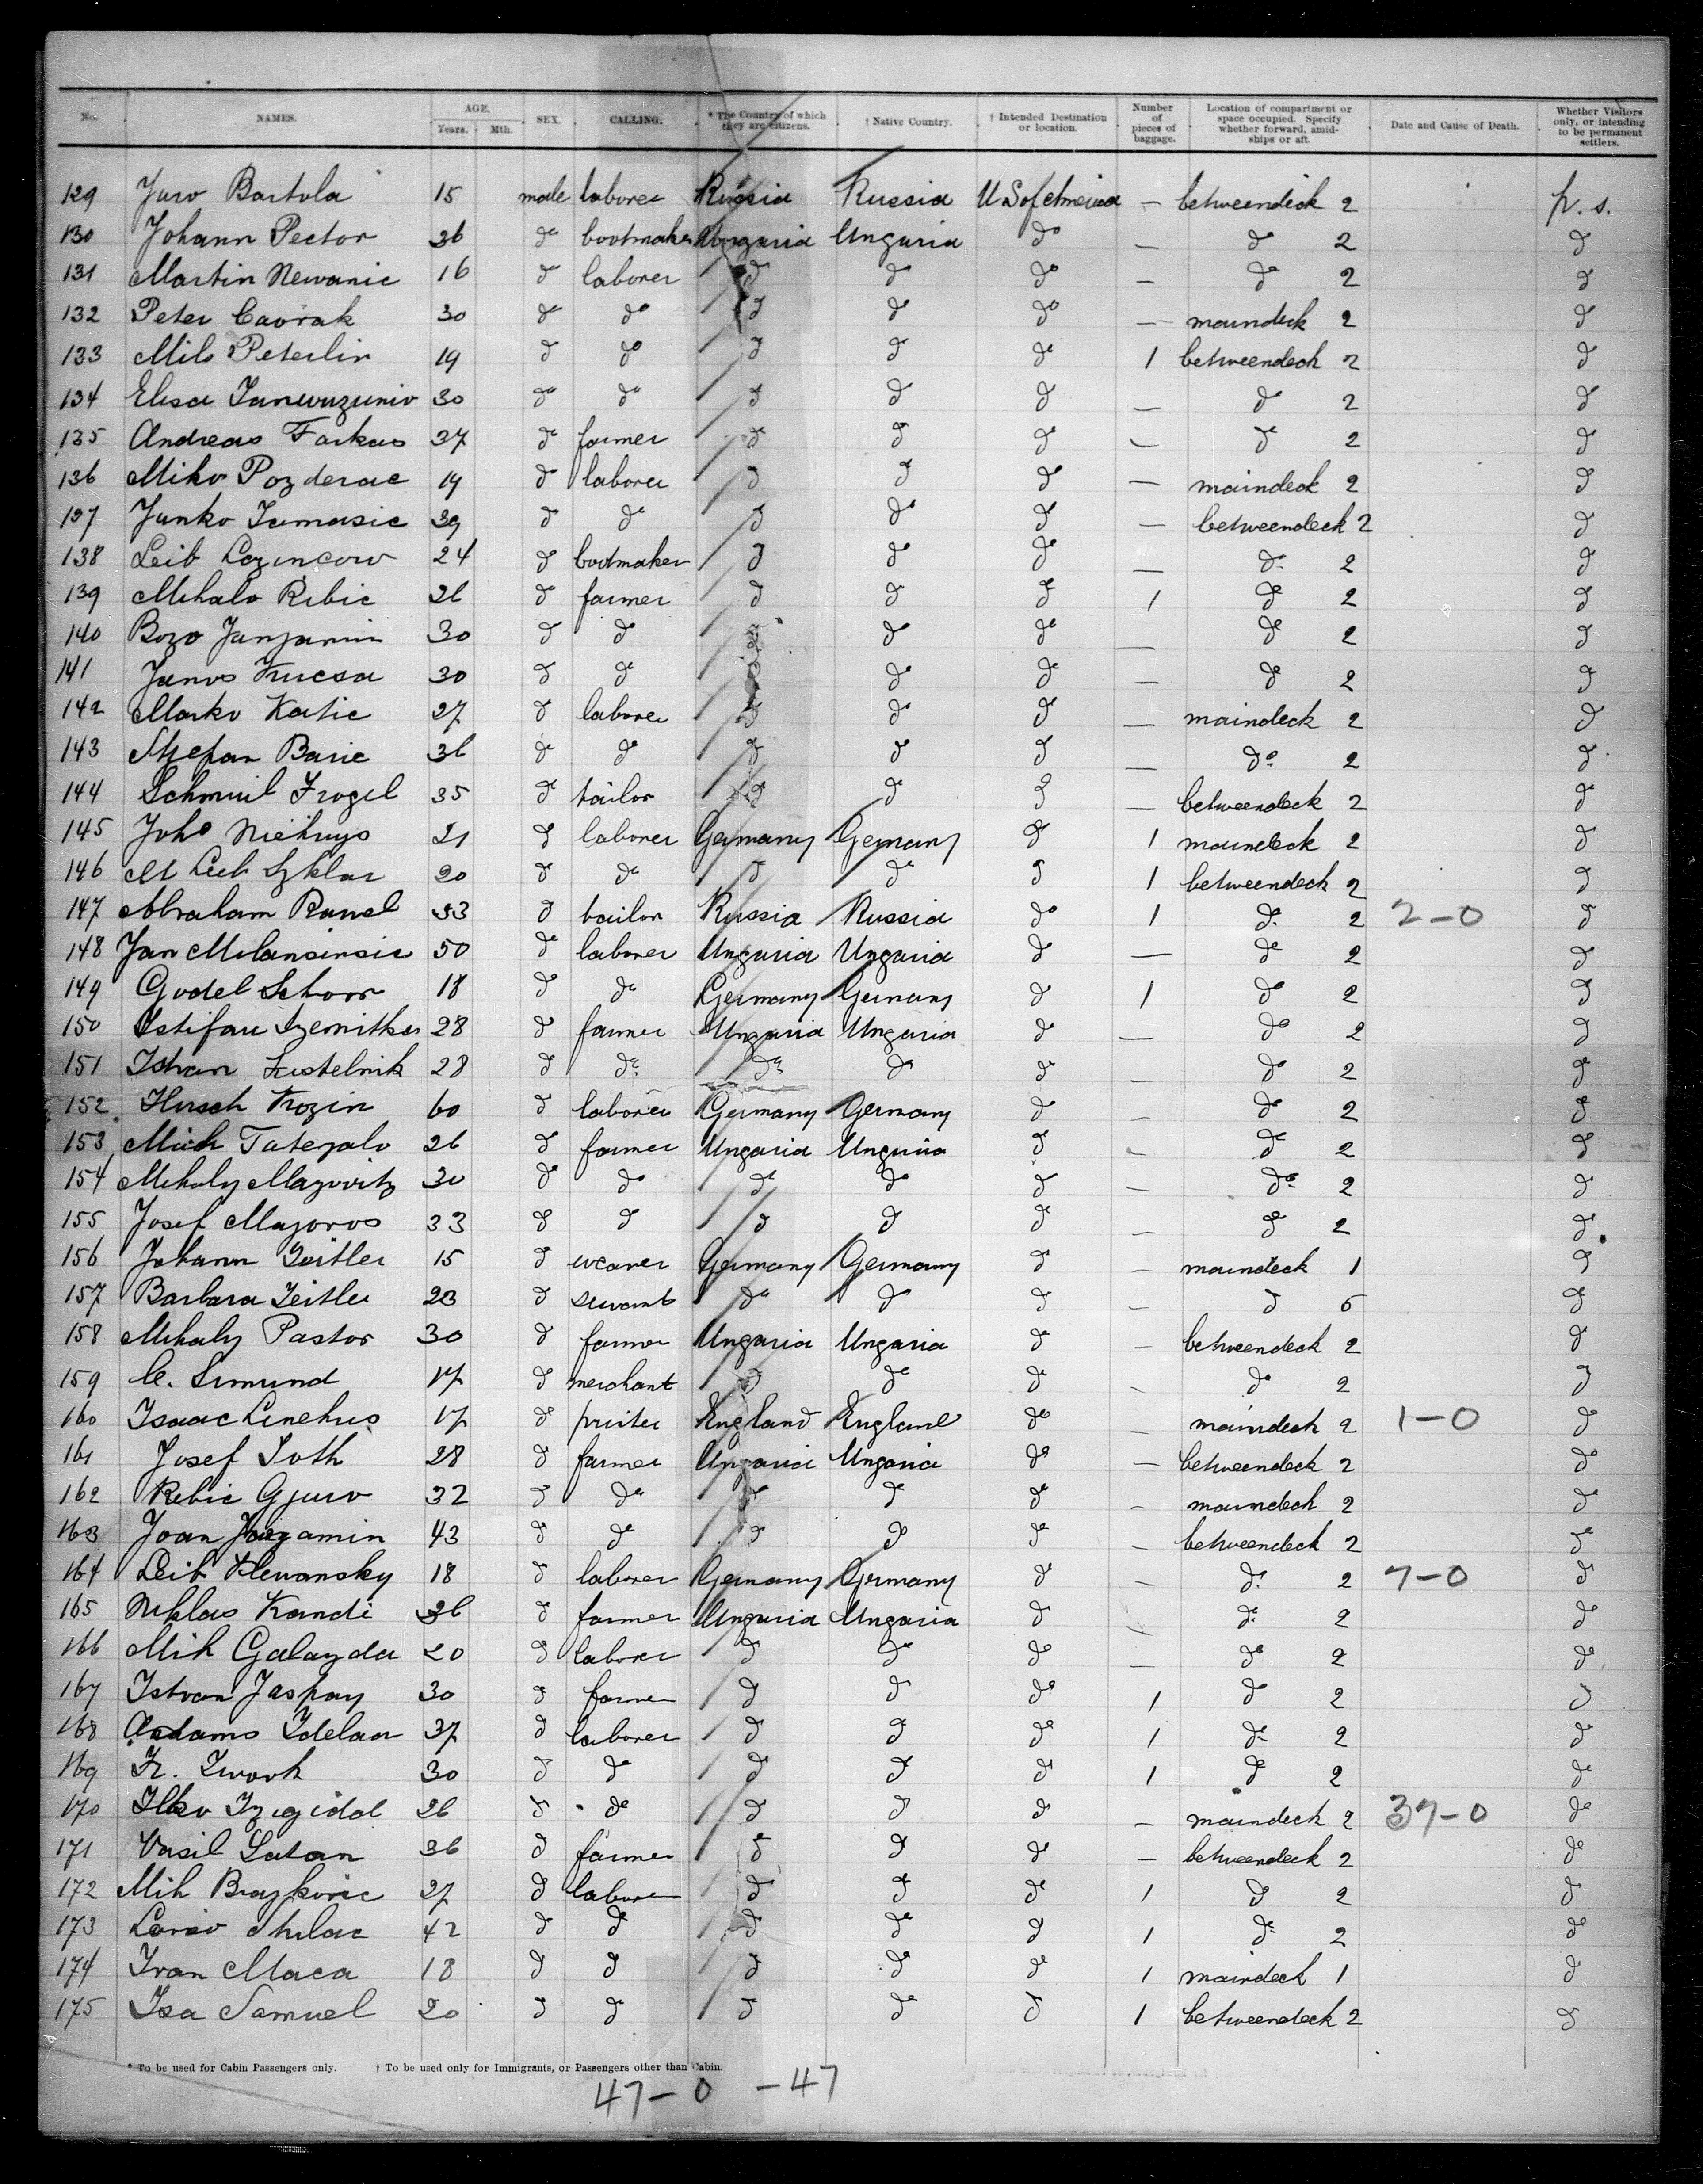 No. NAMES. AGE. Years. Mth. SEX. CALLING. * The Country of which they are citizens. † Native Country. † Intended Destination or location. Number of pieces of baggage. Location of compartment or space occupied. Specify whether forward, amidships or aft. Date and Cause of Death. Whether Visitors only, or intending to be permanent settlers.
129 Juro Bartola 15 male laborer Russia Russia U S of America — betweendeck 2 p. s.
130 Johann Pector 36 do bootmaker Ungaria Ungaria do — do 2 do
131 Martin Newanic 16 do laborer do do do — do 2 do
132 Peter Cavrak 30 do do do do do — maindeck 2 do
133 Milo Peterlin 19 do do do do do 1 betweendeck 2 do
134 Elisa 30 do do do do do — do 2 do
135 Andreas Farkas 37 do farmer do do do — do 2 do
136 Miko Pozderac 19 do laborer do do do — maindeck 2 do
137 Janko Tamasic 39 do do do do do — betweendeck 2 do
138 Leib Lozincow 24 do bootmaker do do do — do 2 do
139 Mihalo Ribic 26 do farmer do do do 1 do 2 do
140 Bozo Janjanin 30 do do do do do — do 2 do
141 Janos Kucsa 30 do do do do do — do 2 do
142 Marko Katic 27 do laborer do do do — maindeck 2 do
143 Stjepan Baric 36 do do do do do — do 2 do
144 Schmuil Frogel 35 do tailor do do do — betweendeck 2 do
145 Joh Niehuys 21 do laborer Germany Germany do 1 maindeck 2 do
146 M Leib Szklar 20 do do do do do 1 betweendeck 2 do
147 Abraham Rawel 33 do tailor Russia Russia do 1 do 2 2-0 do
148 Jan Milansinsic 50 do laborer Ungaria Ungaria do — do 2 do
149 Godel Schorr 18 do do Germany Germany do 1 do 2 do
150 Istifan 28 do farmer Ungaria Ungaria do — do 2 do
151 Istvan Kustelnik 28 do do do do do — do 2 do
152 Hirsch Krozin 60 do laborer Germany Germany do — do 2 do
153 Mich 26 do farmer Ungaria Ungaria do — do 2 do
154 Mihaly Mayovitz 30 do do do do do — do 2 do
155 Josef Mayoros 33 do do do do do — do 2 do
156 Johann Zeitler 15 do weaver Germany Germany do — maindeck 1 do
157 Barbara Zeitler 23 do servant do do do — do 5 do
158 Mihaly Pastor 30 do farmer Ungaria Ungaria do — betweendeck 2 do
159 C. Simund 17 do merchant do do do — do 2 do
160 Isaac Linehus 17 do printer England England do — maindeck 2 1-0 do
161 Josef Toth 28 do farmer Ungaria Ungaria do — betweendeck 2 do
162 Ribic Gjuro 32 do do do do do — maindeck 2 do
163 Joan 43 do do do do do — betweendeck 2 do
164 Leib Klewansky 18 do laborer Germany Germany do — do 2 7-0 do
165 Niklas Kandi 26 do farmer Ungaria Ungaria do — do 2 do
166 Mih Galayda 20 do laborer do do do — do 2 do
167 Istvan Jaspay 30 do farmer do do do 1 do 2 do
168 Adams Idelan 37 do laborer do do do 1 do 2 do
169 Fr. Twork 30 do do do do do 1 do 2 do
170 Ilko 26 do do do do do — maindeck 2 37-0 do
171 Vasil Satan 36 do farmer do do do — betweendeck 2 do
172 Mih Brazkovic 27 do laborer do do do 1 do 2 do
173 Skilac 42 do do do do do 1 do 2 do
174 Ivan Maca 18 do do do do do 1 maindeck 1 do
175 Isa Samuel 20 do do do do do 1 betweendeck 2 do
* To be used for Cabin Passengers only. † To be used only for Immigrants, or Passengers other than Cabin.
47-0 -47